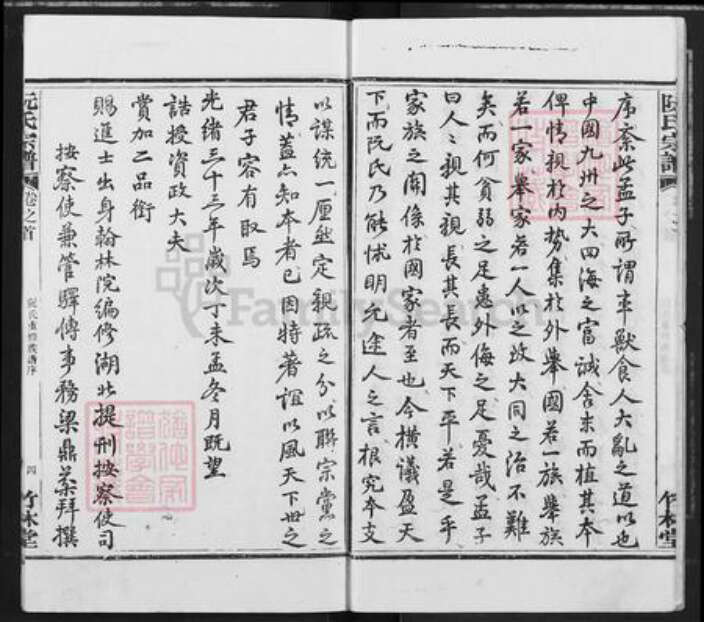 阮氏宗譜
序紊此孟子所謂率獸食人大亂之道以也
中國九州之大四海之富誠舍末而植其本
俾情親於内勢集於外舉國若一族舉族
若一家舉家若一人以之致大同之治不難
矣而何貧弱之足患外侮之足憂哉孟子
曰人人親其親長其長而天下平若是乎
家族之關係於國家者至也今横議盈天
下而阮氏乃能怵明先途人之言根究本支
竹林堂
以謀統一厘然定親疏之分以聯宗黨之
情蓋亦知本者已因特著誼以風天下世之
君子容有取焉
光緒三十三年歲次丁未孟冬月既望
誥授資政大夫
賞加二品銜
賜進士出身翰林院編修湖北提刑按察使司
按察使兼管驛傳事務梁鼎芬拜撰
阮氏宗譜
卷之首
阮氏重修族譜序
四
竹林堂
FamilySearch